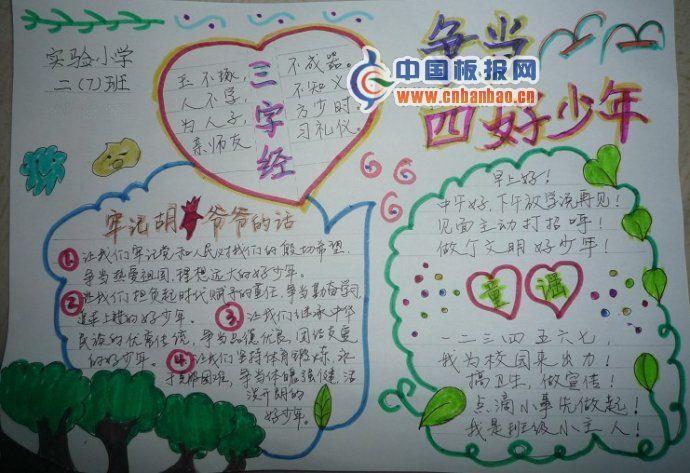 实验小学
二(7)班
三字经
玉不琢，不成器。
人不学，不知义
为人子，方少时
亲师友 习礼仪。
中国板报网
www.cnbanbao.cn
争当
四好少年
牢记胡爷爷的话
1 让我们牢记党和人民对我们的殷切希望，
争当热爱祖国，理想远大的好少年。
2 让我们担负起时代赋予的重任，争当勤奋学习，
追求上进的好少年。 3 让我们继承中华
民族的优良传统，争当品德优良、团结友爱
的好少年。 4 让我们坚持体育锻炼，
困难，争当体魄强健、活
泼开朗的
好少年。
早上好！
中午好，下午放学说再见！
见面主动打招呼！
做个文明好少年！
童谣
一二三四五六七，
我为校园来出力！
搞卫生，做宣传！
点滴小事先做起！
我是班级小主人！